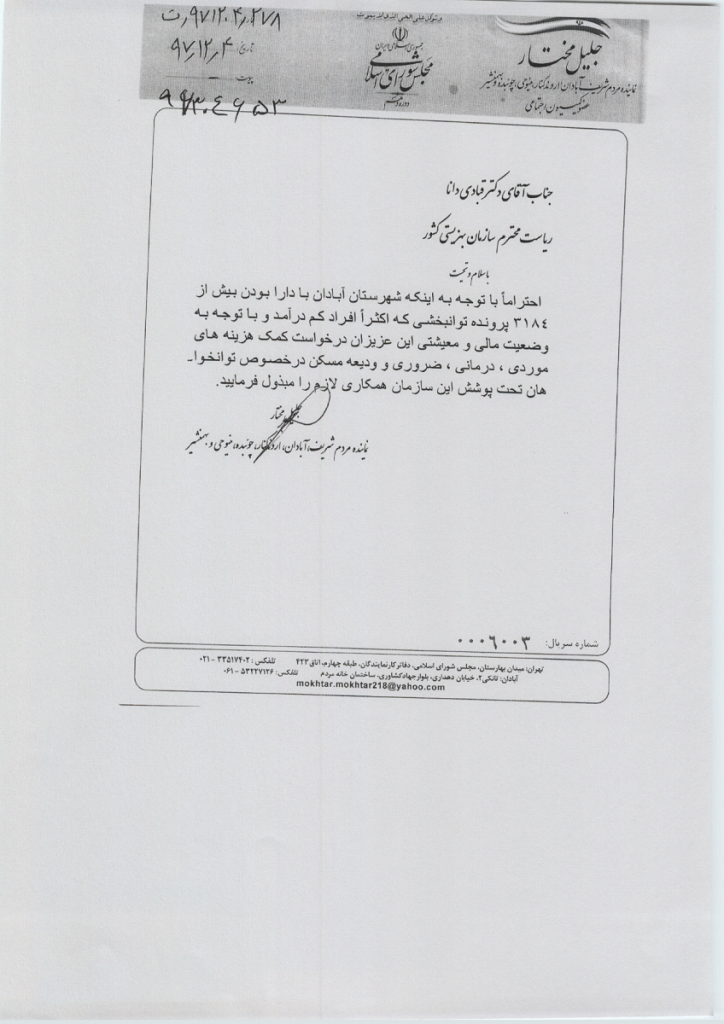 و توکل علی الحی الذی لا یموت
جمهوری اسلامی ایران
مجلس شورای اسلامی
دوره دهم
جلیل مختار
نماینده مردم شریف آبادان، اروندکنار، مینویی، چوئبده و بهمنشیر
عضو کمیسیون اجتماعی
۹۷۱۲۰۴٫۲۷۸٫ت
تاریخ: ۹۷٫۱۲٫۴
پیوست
جناب آقای دکتر قبادی دانا
ریاست محترم سازمان بهزیستی کشور
با سلام و تحیت
احتراماً با توجه به اینکه شهرستان آبادان با دارا بودن بیش از
۳۱۸٤ پرونده توانبخشی که اکثراً افراد کم درآمد و با توجه به
وضعیت مالی و معیشتی این عزیزان درخواست کمک هزینه های
موردی ، درمانی ، ضروری و ودیعه مسکن درخصوص توانخوا-
هان تحت پوشش این سازمان همکاری لازم را مبذول فرمایید.
جلیل مختار
نماینده مردم شریف آبادان، اروندکنار، چوئبده، مینوحی و بهمنشیر
شماره سریال: ۰۰۰۶۰۰۳
تهران: میدان بهارستان، مجلس شورای اسلامی، دفاتر کار نمایندگان، طبقه چهارم، اتاق ۴۲۳ تلفکس: ۳۳۵۱۷۴۰۲ - ۰۲۱
آبادان: تانکی۲، خیابان دهداری، بلوار جهاد کشاورزی، ساختمان خانه مردم تلفکس: ۵۳۲۲۷۱۲۶ - ۰۶۱
mokhtar.mokhtar218@yahoo.com